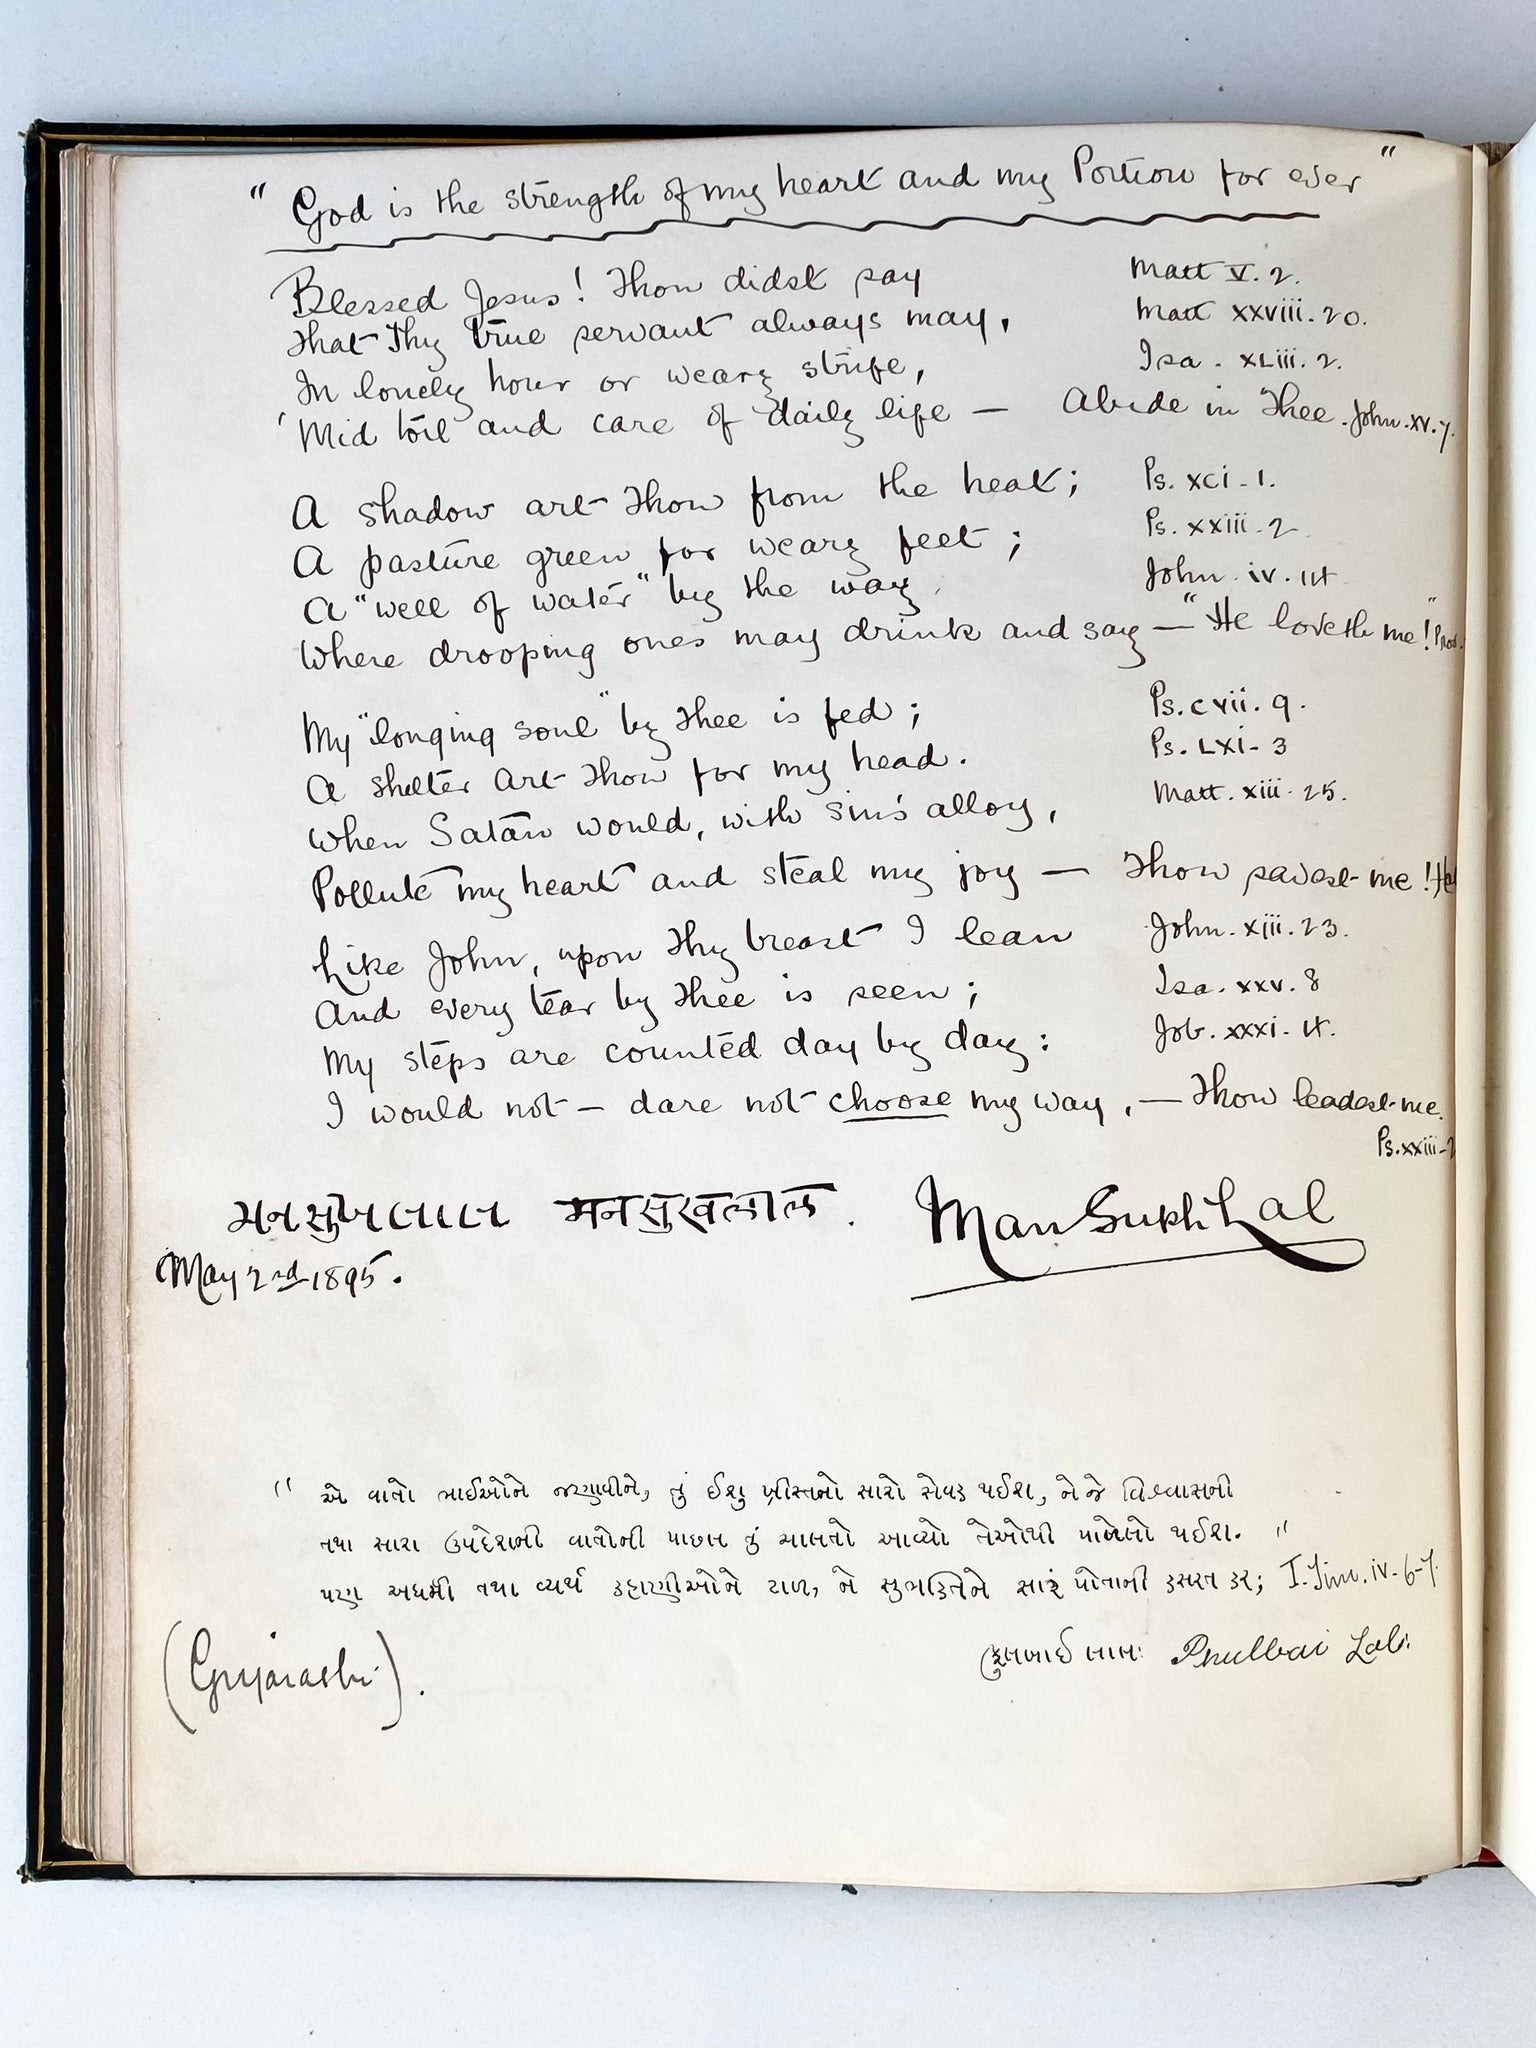 " God is the strength of my heart and my Portion for ever "
Blessed Jesus! Thou didst say Matt V. 2.
That Thy true servant always may, Matt xxviii. 20.
In lonely hour or weary strife, Isa. XLiii. 2.
'Mid toil and care of daily life — Abide in Thee. John. xv. 7.
A shadow art Thou from the heat; Ps. xci - 1.
A pasture green for weary feet; Ps. xxiii - 2
A "well of water" by the way John. iv. 14
Where drooping ones may drink and say — "He loveth me!"
My "longing soul" by Thee is fed; Ps. cvii. 9.
A shelter art Thou for my head. Ps. LXi - 3
When Satan would, with sin's alloy, Matt. xiii. 25.
Pollute my heart and steal my joy — Thou savest me!
Like John, upon Thy breast I lean John. xiii. 23.
And every tear by Thee is seen; Isa. xxv. 8
My steps are counted day by day: Job. xxxi - 4.
I would not — dare not choose my way, — Thou leadest me.
Ps. xxiii - 2
મનસુખલાલ मनसुखलाल. Mansukh Lal
May 2nd 1895.
" એ વાતો ભાઈઓને જણાવીને, તું ઈશુ ખ્રીસ્તનો સારો સેવક થઈશ, ને જે વિશ્વાસની
તથા સારા ઉપદેશની વાતોની પાછળ તું ચાલતો આવ્યો તેઓથી પાળેલો થઈશ. "
પણ અધર્મી તથા વ્યર્થ કહાણીઓને ટાળ, ને સુભક્તિને સારૂ પોતાની કસરત કર; I. Tim. iv. 6-7.
ફુલબાઈ લાલ: Phulbai Lal:
(Gujarathi).